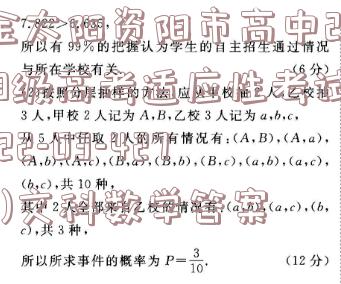 7.822>6.635,
所以有 99%的把握认为学生的自主招生通过情况
与所在学校有关. (6分)
(2)按照分层抽样的方法,应从甲校抽2人,乙校抽
3人,甲校2人记为A,B,乙校3人记为a,b,c,
从5人中任取2人的所有情况有:(A,B),(A,a),
(A,b),(A,c),(B,a),(B,b),(B,c),(a,b),(a,c),
(b,c),共10种,
其中2人全部来自乙校的情况有:(a,b),(a,c),(b,
c),共3种,
所以所求事件的概率为 P=3/10. (12分)
金太阳资阳市高中2
级高考适应性考试
22-09-427
)文科数学答案